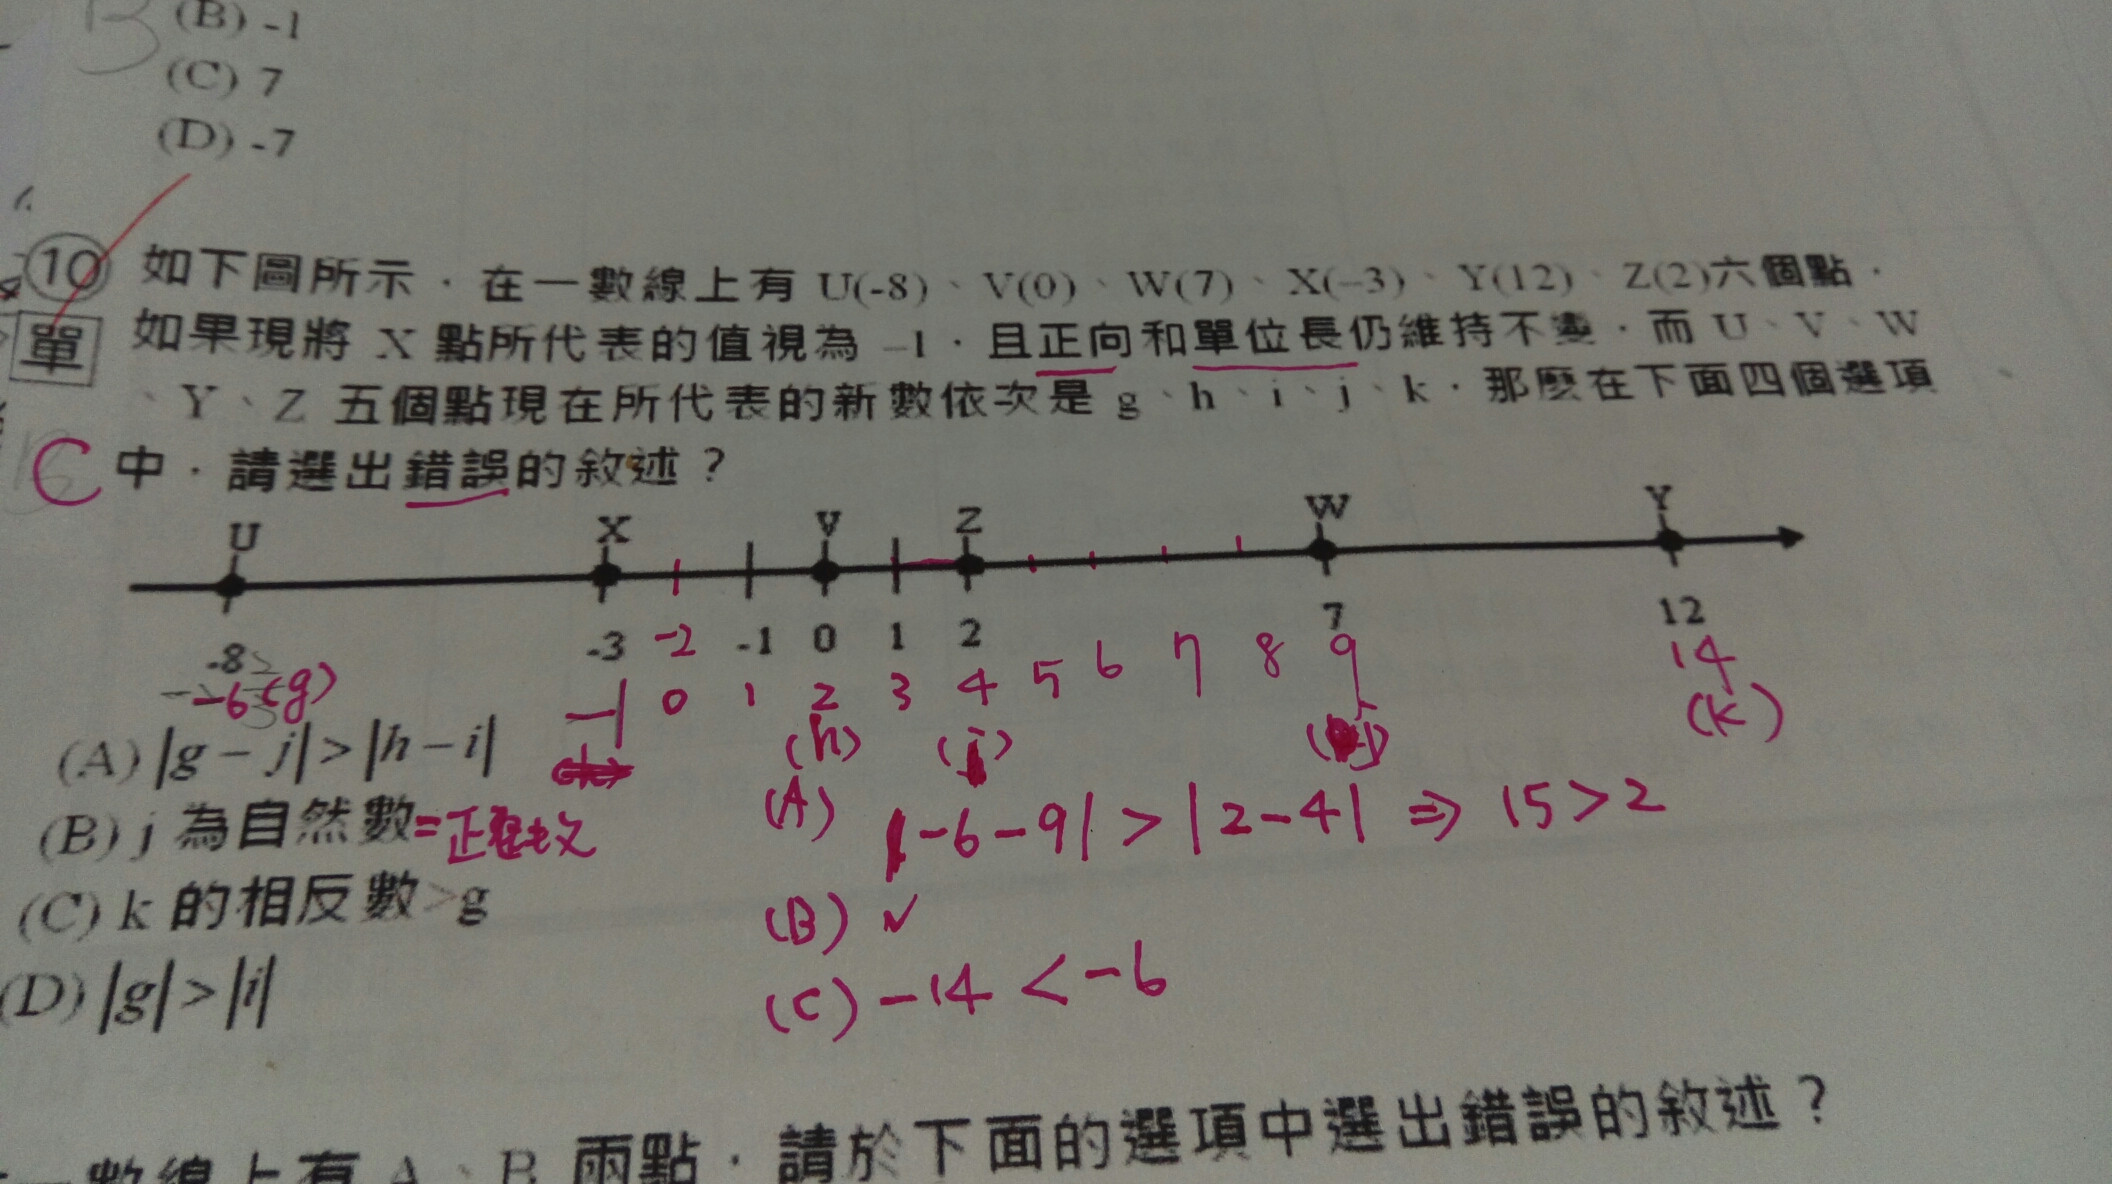 (B) -1
(C) 7
(D) -7
10 如下圖所示，在一數線上有 U(-8)、V(0)、W(7)、X(-3)、Y(12)、Z(2)六個點．
單 如果現將 X 點所代表的值視為 -1，且正向和單位長仍維持不變，而 U、V、W
、Y、Z 五個點現在所代表的新數依次是 g、h、i、j、k，那麼在下面四個選項
C 中，請選出錯誤的敘述？
U X V Z W Y
-8 -3 -2 -1 0 1 2 7 12
-6 (g) -1 0 1 2 3 4 5 6 7 8 9 14
(h) (i) (j) (k)
(A) |g - j| > |h - i|
(A) |-6-9| > |2-4| ⇒ 15>2
(B) j 為自然數=正整數
(B) ✓
(C) k 的相反數>g
(C) -14 < -6
(D) |g| > |i|
一數線上有 A、B 兩點，請於下面的選項中選出錯誤的敘述？